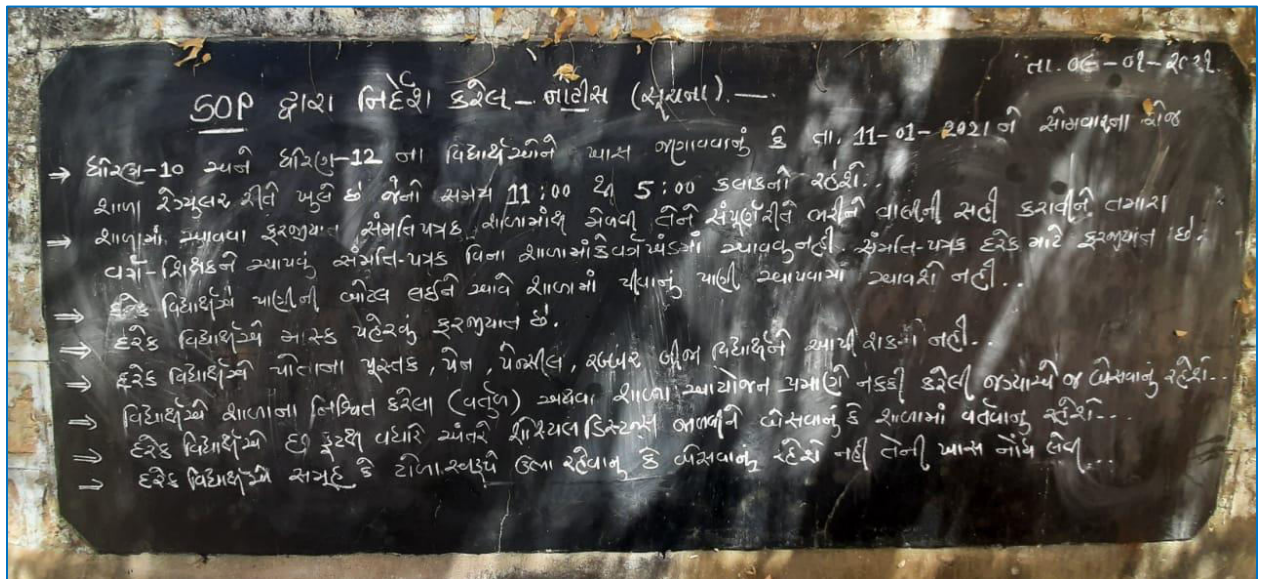 તા. ૦૯-૦૧-૨૦૨૧.
SOP દ્વારા નિર્દેશ કરેલ - નોટીસ (સૂચના). —
→ ધોરણ-10 અને ધોરણ-12 ના વિદ્યાર્થીઓને ખાસ જણાવવાનું કે તા. 11-01-2021 ને સોમવારના રોજ
શાળા રેગ્યુલર રીતે ખુલે છે જેનો સમય 11:00 થી 5:00 કલાકનો રહેશે..
→ શાળામાં આવવા ફરજીયાત સંમતિ પત્રક શાળામાંથી મેળવી તેને સંપૂર્ણ રીતે ભરીને વાલીની સહી કરાવીને તમારા
વર્ગ-શિક્ષકને આપવું સંમતિ-પત્રક વિના શાળામાં કે વર્ગખંડમાં આવવું નહી. સંમતિ-પત્રક દરેક માટે ફરજીયાત છે.
⇒ દરેક વિદ્યાર્થીએ પાણીની બોટલ લઈને આવે શાળામાં પીવાનું પાણી આપવામાં આવશે નહી..
⇒ દરેક વિદ્યાર્થીએ માસ્ક પહેરવું ફરજીયાત છે.
⇒ દરેક વિદ્યાર્થીએ પોતાના પુસ્તક, પેન, પેન્સીલ, રબ્બર બીજા વિદ્યાર્થીને આપી શકશે નહી..
⇒ વિદ્યાર્થીએ શાળાના નિશ્ચિત કરેલા (વર્તુળ) અથવા શાળા આયોજન પ્રમાણે નક્કી કરેલી જગ્યાએ જ બેસવાનું રહેશે..
⇒ દરેક વિદ્યાર્થીએ છ ફૂટથી વધારે અંતરે શોસ્યિલ ડિસ્ટન્સ જાળવીને બેસવાનું કે શાળામાં વર્તવાનું રહેશે...
⇒ દરેક વિદ્યાર્થીએ સમૂહ કે ટોળા સ્વરૂપે ઉભા રહેવાનું કે બેસવાનું રહેશે નહી તેની ખાસ નોંધ લેવી...